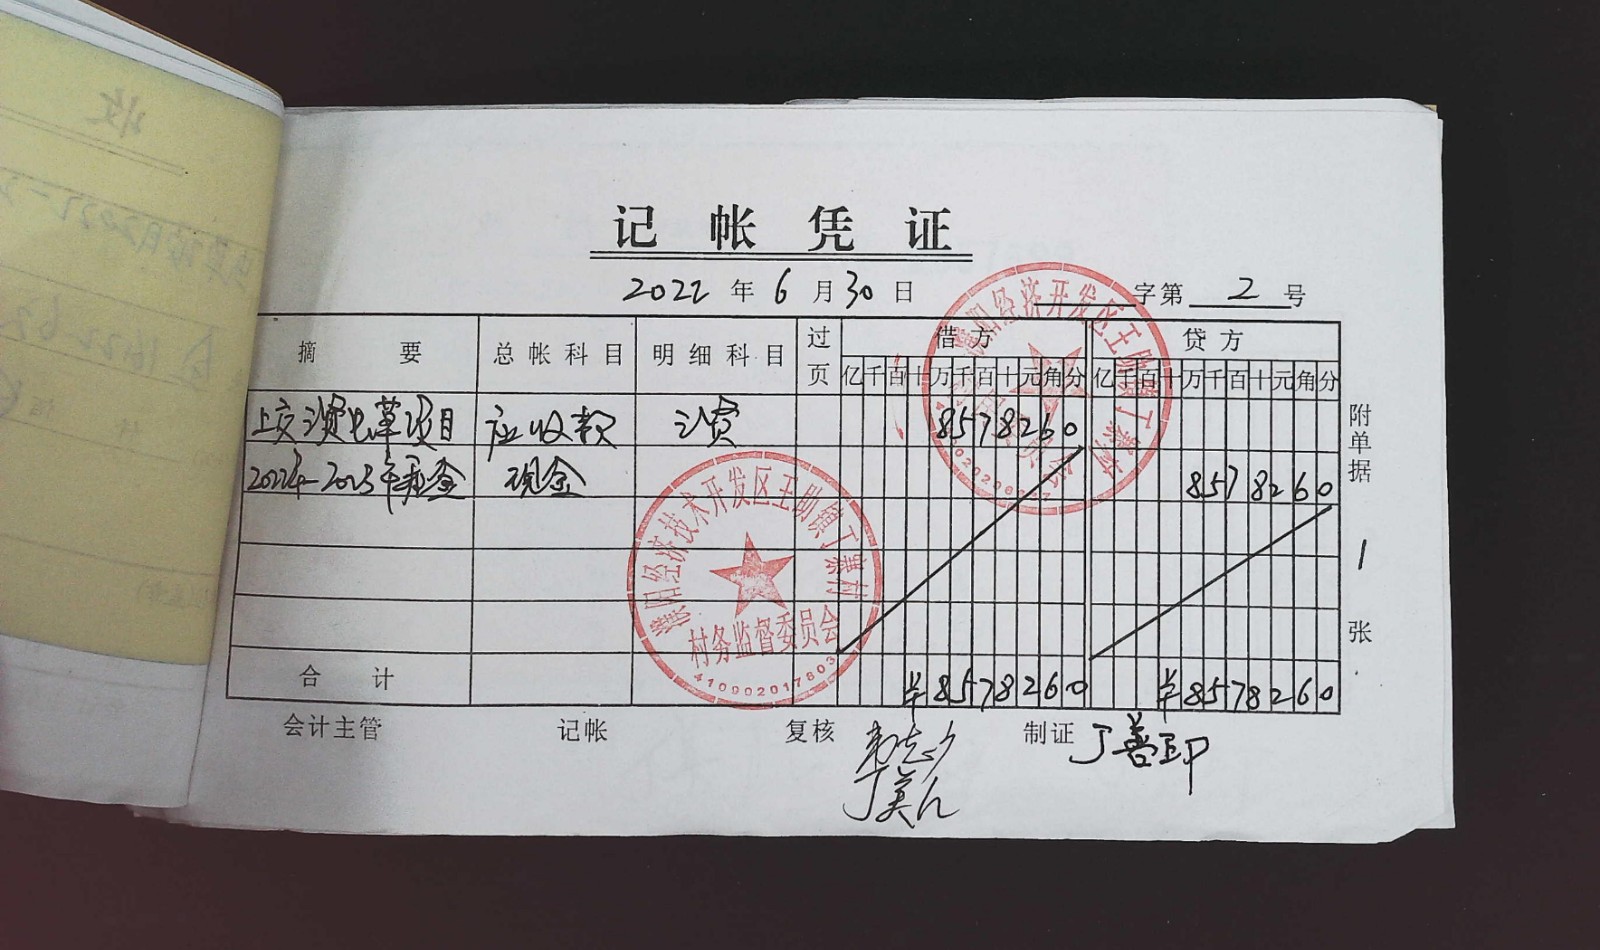 收
记帐凭证
2022年6月30日
字第 2 号
摘要 总帐科目 明细科目 过页 借方 贷方
亿千百十万千百十元角分 亿千百十万千百十元角分
上交 项目 应收款 8578260
2022年-2023年租金 现金 8578260
合计 ¥8578260 ¥8578260
附单据 1 张
会计主管 记帐 复核 制证 丁善印
濮阳经济技术开发区王助镇丁寨村
村务监督委员会
410902017803